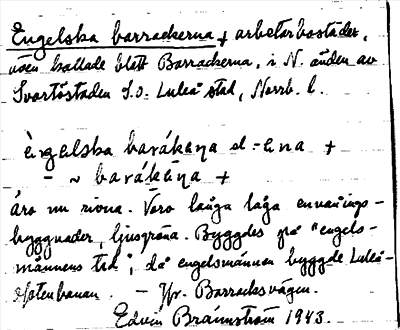 Engelska barrackerna + arbetarbostäder,
även kallade blott Barrackerna, i N. änden av
Svartöstaden S.O. Luleå stad, Norrb. l.
èngelska barákeṇa el. -ena +
— ~ barákēṇa +
äro nu rivna. Voro långa låga envånings-
byggnader, ljusgröna. Byggdes på "engels-
männens tid", då engelsmännen byggde Luleå-
Ofotenbanan. — Jfr. Barracksvägen.
Edvin Brännström 1943.